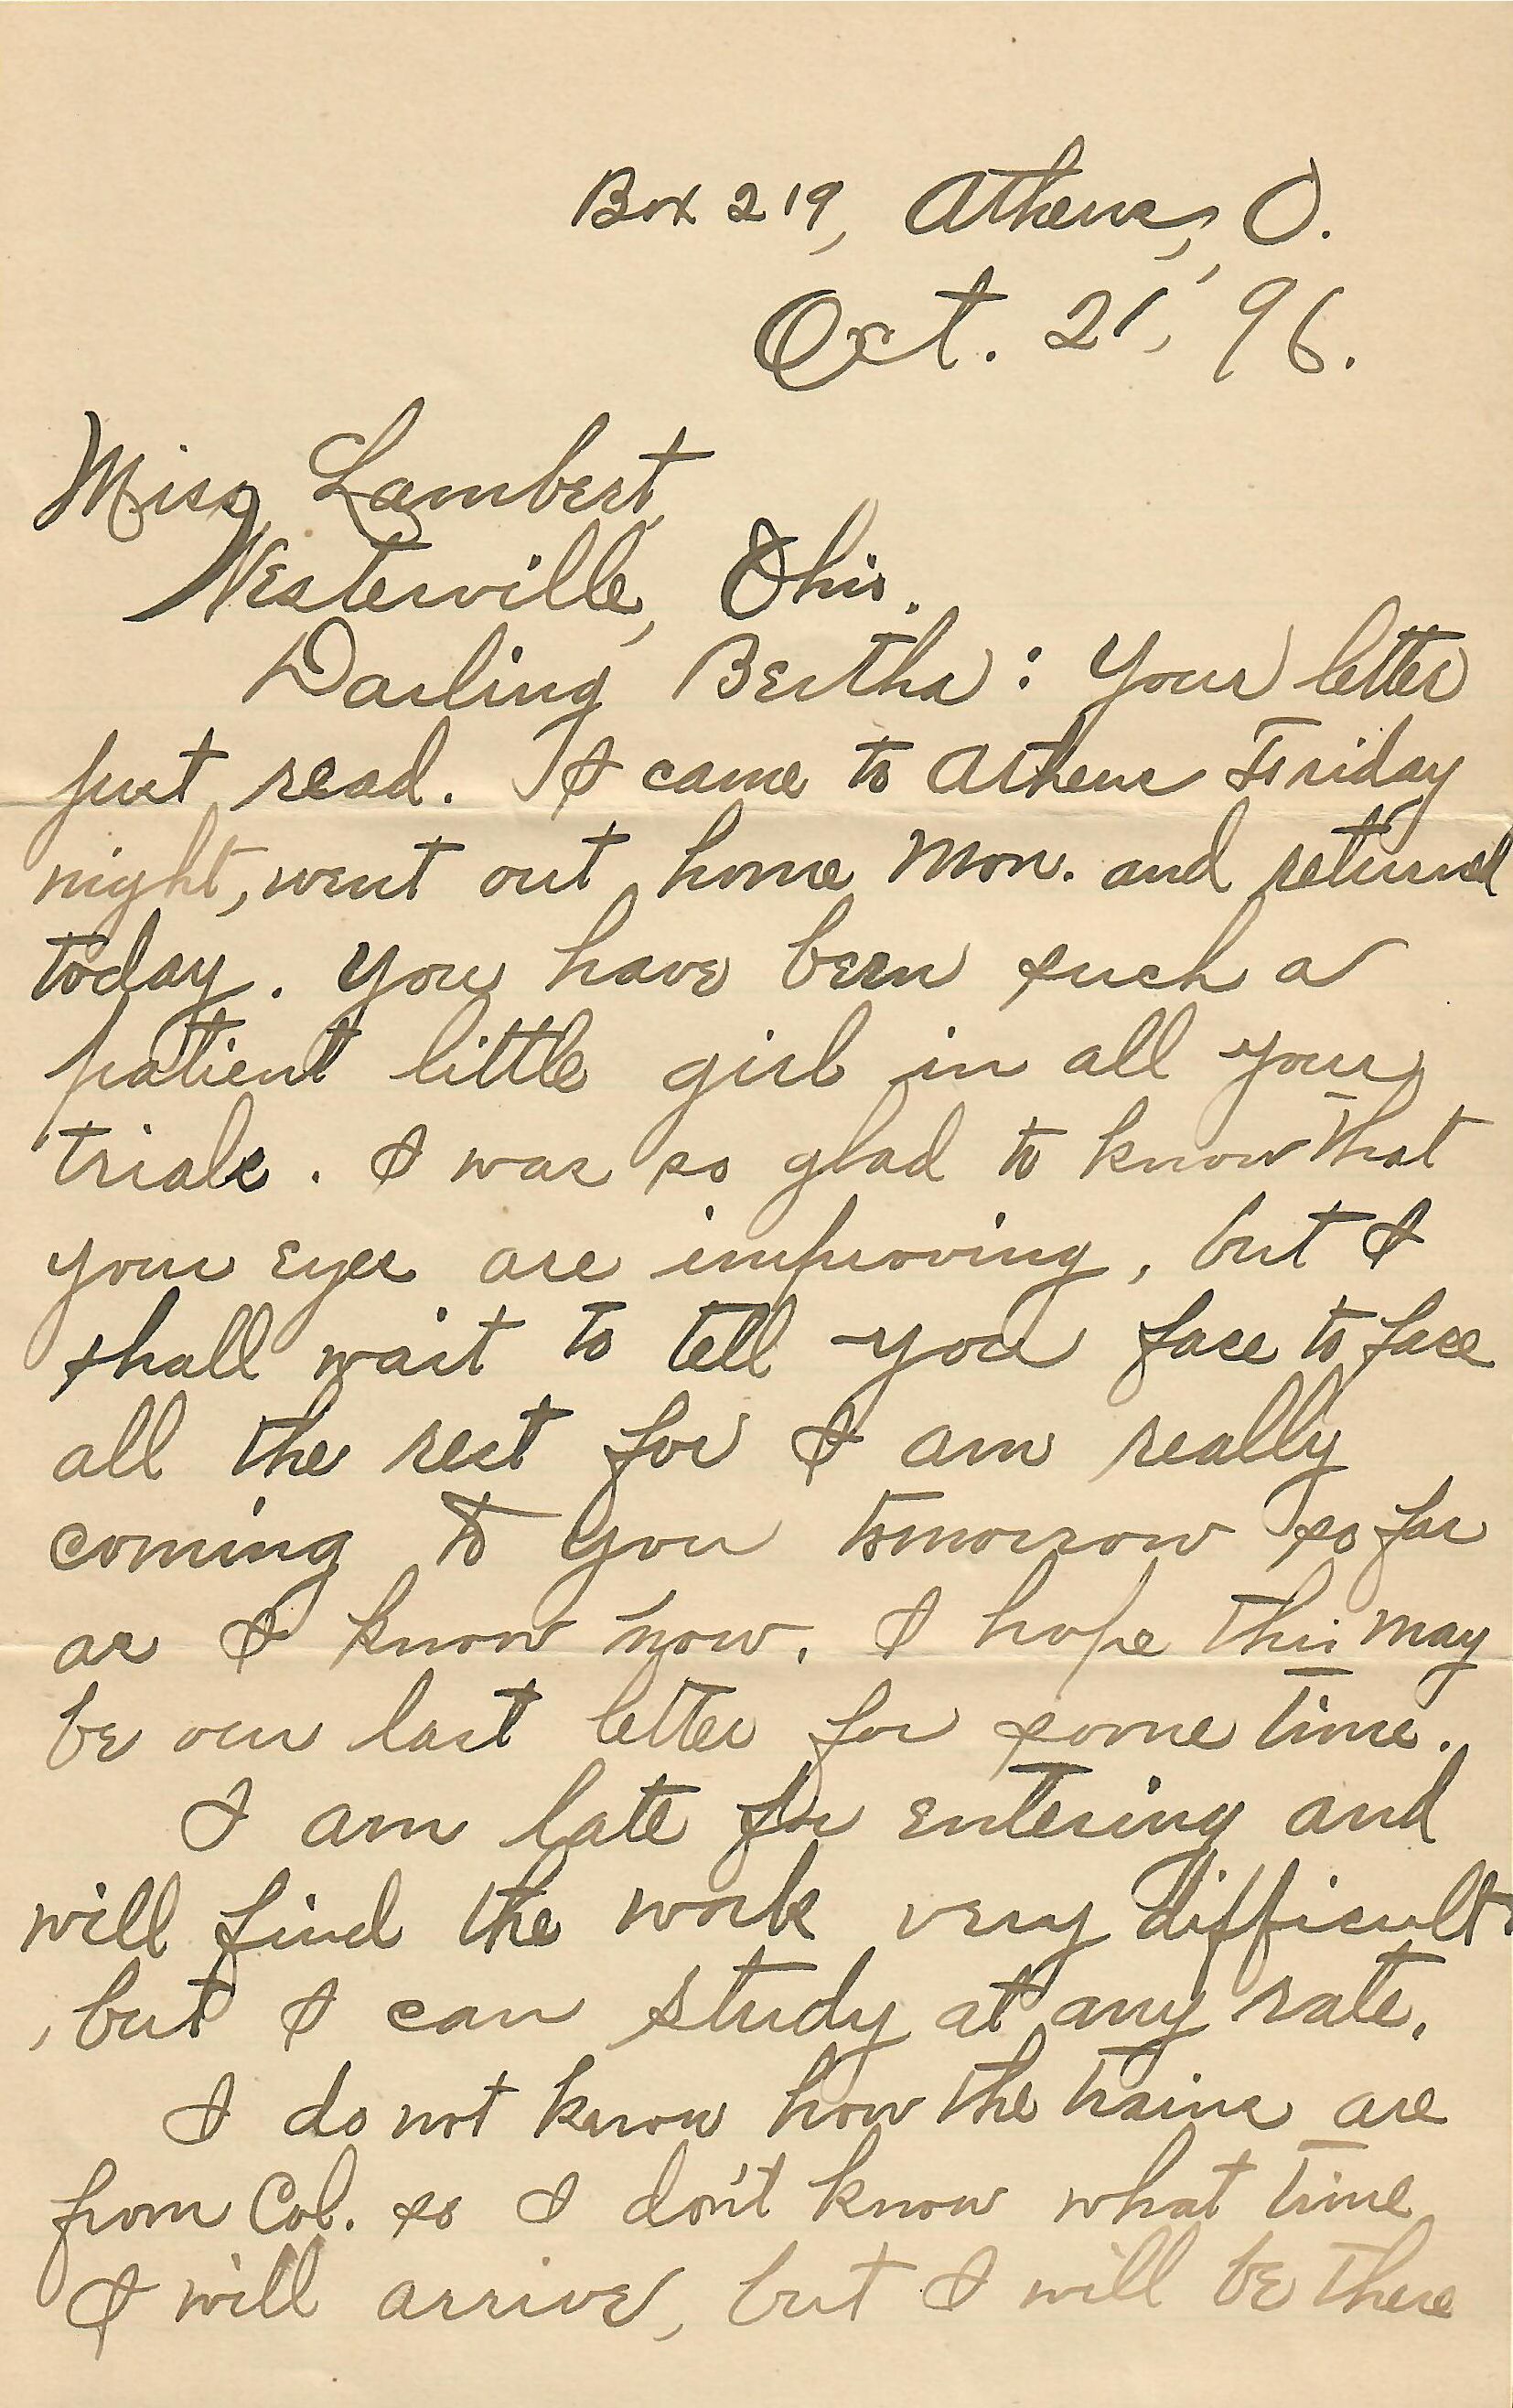 Box 219, Athens, O.
Oct. 21, '96.
Miss Lambert,
Westerville, Ohio.
Darling Bertha: Your letter
just read. I came to Athens Friday
night, went out home Mon. and returned
today. You have been such a
patient little girl in all your
trials. I was so glad to know that
your eyes are improving, but I
shall wait to tell you face to face
all the rest for I am really
coming to you tomorrow so far
as I know now. I hope this may
be our last letter for some time.
I am late for entering and
will find the work very difficult
, but I can study at any rate.
I do not know how the trains are
from Col. so I don't know what time
I will arrive, but I will be there